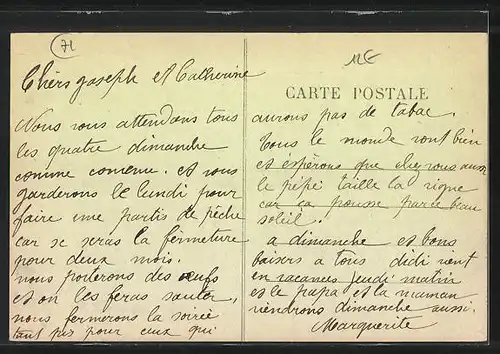 71
12€
Chers joseph et Catherine
CARTE POSTALE
Nous vous attendons tous
les quatre dimanche
comme convenu. et vous
garderons le lundi pour
faire une partis de pêche
car se seras la fermeture
pour deux mois.
nous porterons des œufs
et on les feras sauter,
nous fermerons la soirée
tant pis pour ceux qui
aurons pas de tabac.
tous le monde vont bien
et espérons que chez vous aussi
le pépé taille la vigne
car ça pousse par ce beau
soleil.
a dimanche et bons
baisers a tous dédi vient
en vacances jeudi matin
et le papa et la maman
viendrons dimanche aussi.
Marguerite